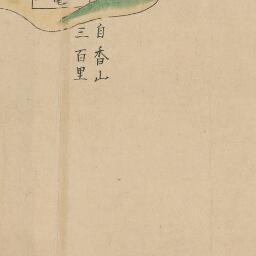 自香山
三百里